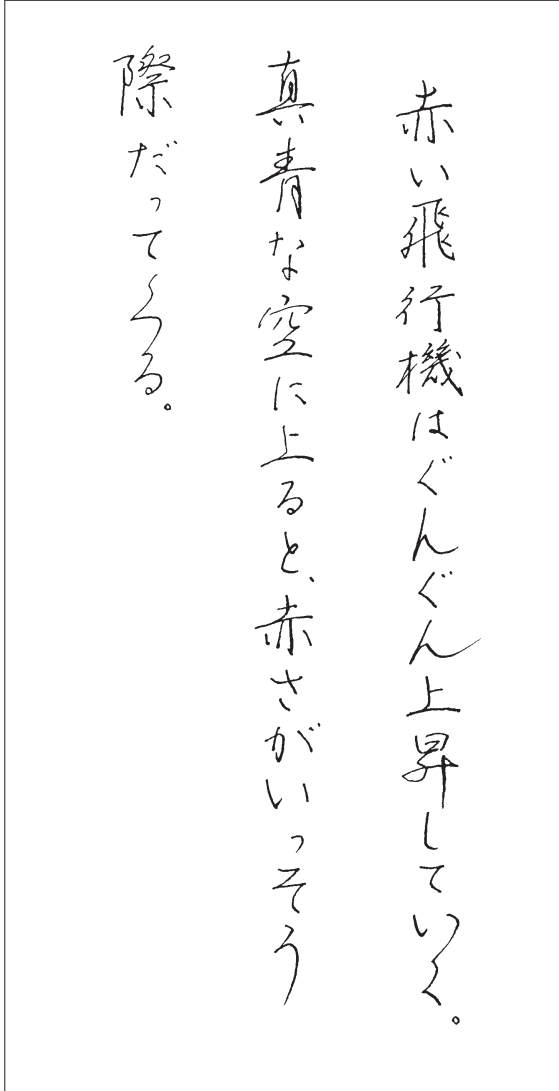 赤い飛行機はぐんぐん上昇していく。
真青な空に上ると、赤さがいっそう
際だってくる。